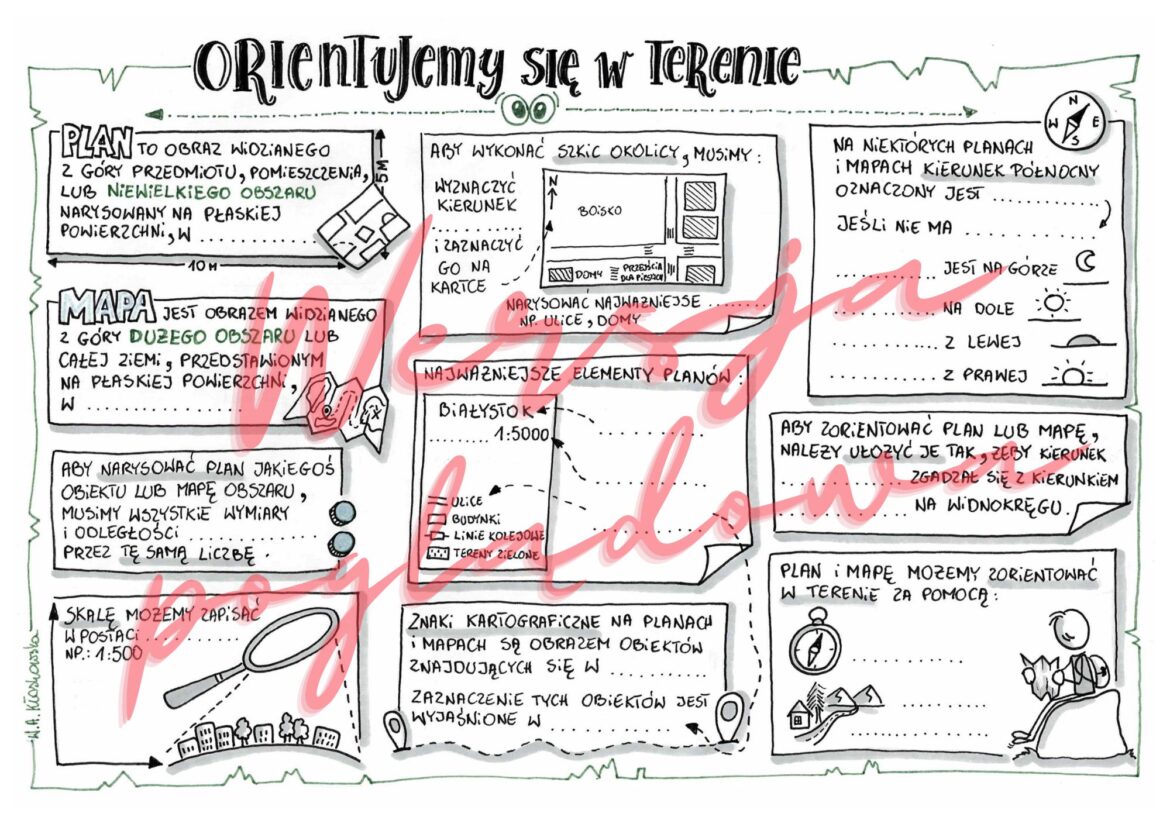 ORIENTUJEMY SIĘ W TERENIE
PLAN TO OBRAZ WIDZIANEGO
Z GÓRY PRZEDMIOTU, POMIESZCZENIA,
LUB NIEWIELKIEGO OBSZARU
NARYSOWANY NA PŁASKIEJ
POWIERZCHNI, W ..............
5 M
10 M
MAPA JEST OBRAZEM WIDZIANEGO
Z GÓRY DUŻEGO OBSZARU LUB
CAŁEJ ZIEMI, PRZEDSTAWIONYM
NA PŁASKIEJ POWIERZCHNI,
W ..................
ABY NARYSOWAĆ PLAN JAKIEGOŚ
OBIEKTU LUB MAPĘ OBSZARU,
MUSIMY WSZYSTKIE WYMIARY
I ODLEGŁOŚCI ..............
PRZEZ TĘ SAMĄ LICZBĘ.
SKALĘ MOŻEMY ZAPISAĆ
W POSTACI ..............
NP.: 1:500
W.A. Kłoskowska
ABY WYKONAĆ SZKIC OKOLICY, MUSIMY:
WYZNACZYĆ
KIERUNEK
..............
I ZAZNACZYĆ
GO NA
KARTCE
N
BOISKO
DOMY
PRZEJŚCIA
DLA PIESZYCH
NARYSOWAĆ NAJWAŻNIEJSZE ..............
NP. ULICE, DOMY
NAJWAŻNIEJSZE ELEMENTY PLANÓW:
BIAŁYSTOK
......... 1:5000
ULICE
BUDYNKI
LINIE KOLEJOWE
TERENY ZIELONE
..............
..............
ZNAKI KARTOGRAFICZNE NA PLANACH
I MAPACH SĄ OBRAZEM OBIEKTÓW
ZNAJDUJĄCYCH SIĘ W ..............
ZAZNACZENIE TYCH OBIEKTÓW JEST
WYJAŚNIONE W ..............
N
W E
S
NA NIEKTÓRYCH PLANACH
I MAPACH KIERUNEK PÓŁNOCNY
OZNACZONY JEST ..............
JEŚLI NIE MA ..............
.............. JEST NA GÓRZE
.............. NA DOLE
.............. Z LEWEJ
.............. Z PRAWEJ
ABY ZORIENTOWAĆ PLAN LUB MAPĘ,
NALEŻY UŁOŻYĆ JE TAK, ŻEBY KIERUNEK
.............. ZGADZAŁ SIĘ Z KIERUNKIEM
.............. NA WIDNOKRĘGU.
PLAN I MAPĘ MOŻEMY ZORIENTOWAĆ
W TERENIE ZA POMOCĄ:
..............
..............
Wersja
poglądowa